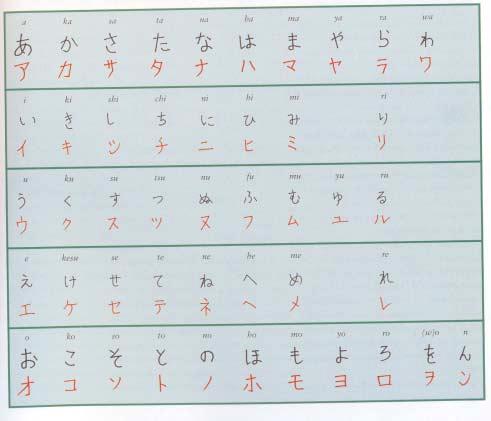 a ka sa ta na ha ma ya ra wa
あ か さ た な は ま や ら わ
ア カ サ タ ナ ハ マ ヤ ラ ワ
i ki shi chi ni hi mi ri
い き し ち に ひ み り
イ キ シ チ ニ ヒ ミ リ
u ku su tsu nu fu mu yu ru
う く す つ ぬ ふ む ゆ る
ウ ク ス ツ ヌ フ ム ユ ル
e kesu se te ne he me re
え け せ て ね へ め れ
エ ケ セ テ ネ ヘ メ レ
o ko so to no ho mo yo ro (w)o n
お こ そ と の ほ も よ ろ を ん
オ コ ソ ト ノ ホ モ ヨ ロ ヲ ン